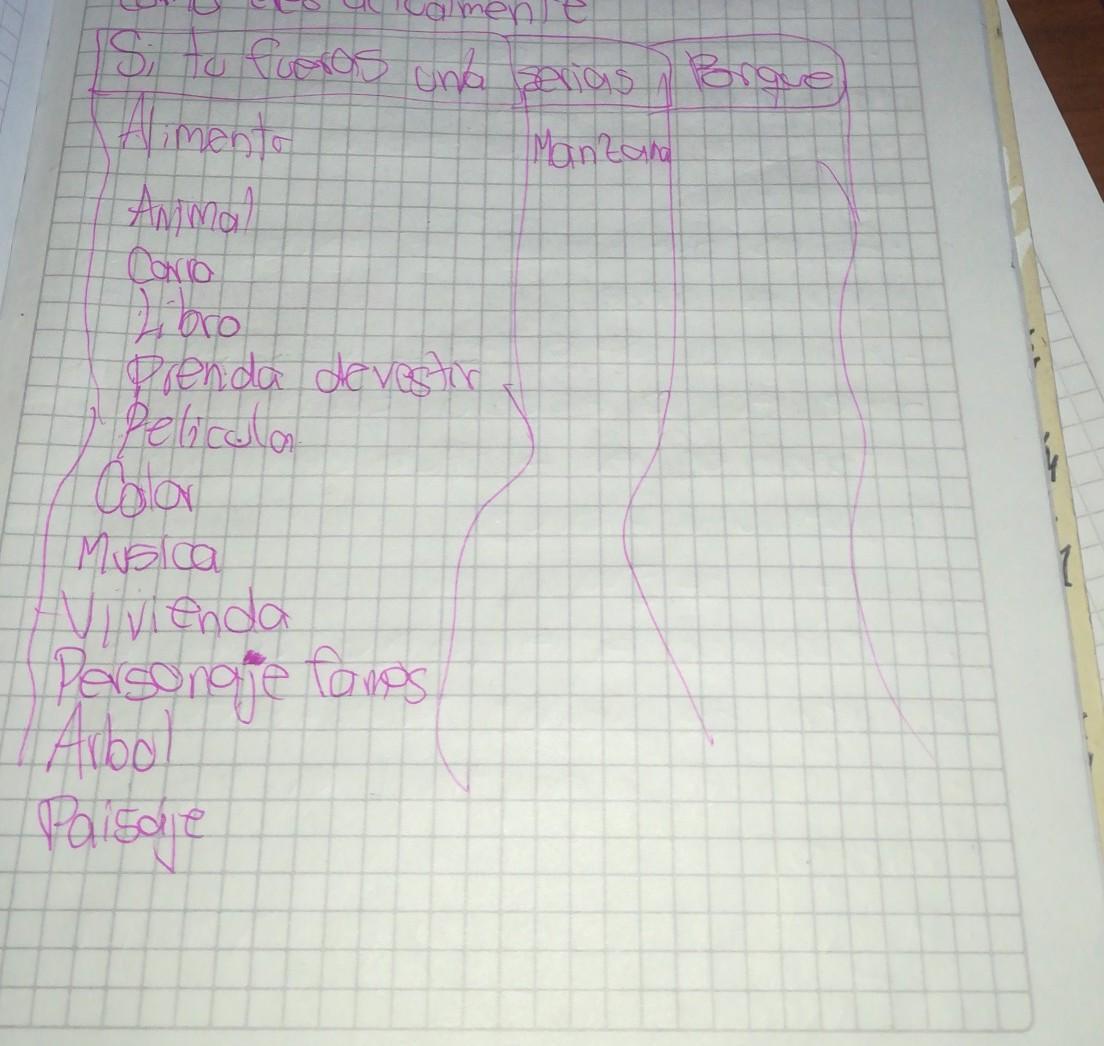 Si tu fueras una serias Porque
Alimento Manzana
Animal
Carro
Libro
Prenda de vestir
Pelicula
Color
Musica
Vivienda
Personaje famos
Arbol
Paisaje